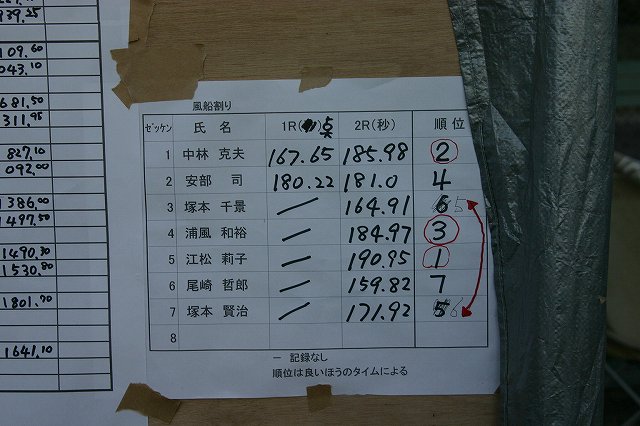 939.25
109.60
043.10
681.50
311.95
827.10
092.00
1386.00
1497.50
1490.30
1530.80
1801.70
1641.10
風船割り
ｾﾞｯｹﾝ 氏 名 1R( )点 2R(秒) 順 位
1 中林 克夫 167.65 185.98 2
2 安部 司 180.22 181.0 4
3 塚本 千景 ― 164.91 6 5
4 浦風 和裕 ― 184.97 3
5 江松 莉子 ― 190.95 1
6 尾崎 哲郎 ― 159.82 7
7 塚本 賢治 ― 171.92 5 6
8
― 記録なし
順位は良いほうのタイムによる